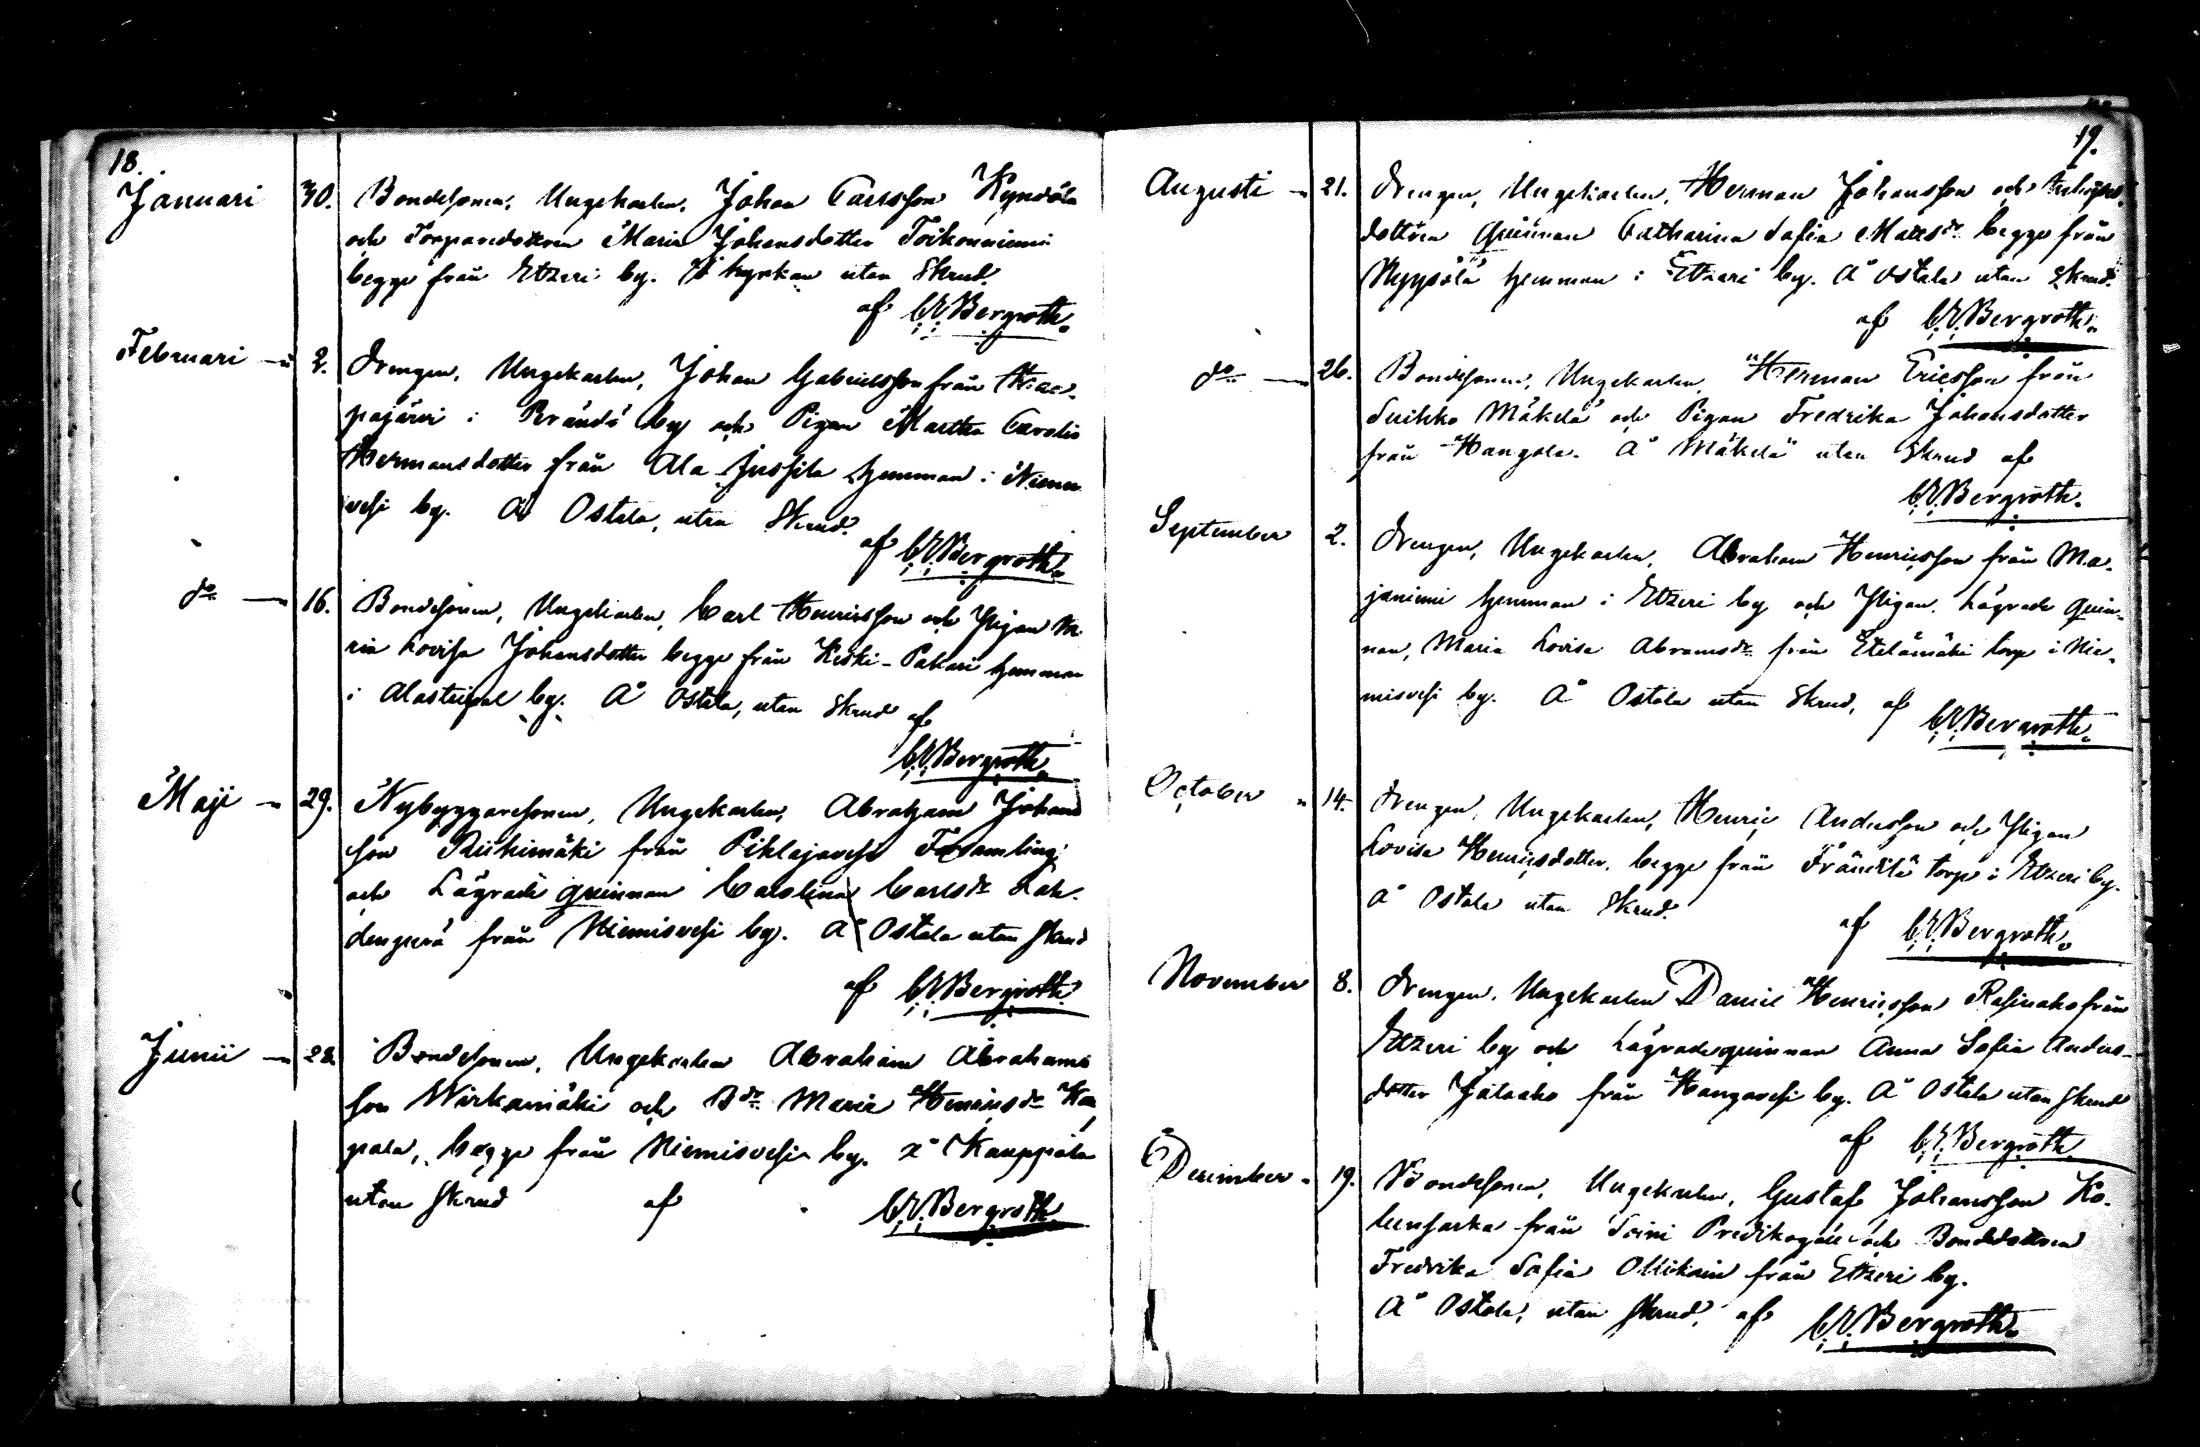 18.
Januari 30. Bondesonen, Ungekarlen, Johan Carlsson Kyndölä
och Torparedottren Maria Johansdotter Toikonniemi
begge från Etzeri by. I kyrkan utan Skrud.
af C.V. Bergroth.
Februari 2. Drengen, Ungekarlen, Johan Gabrielsson från
pajärvi i Rrändä by och Pigan Martha Carolin
Hermansdotter från Ala Jussila hemman i Niemis
vesi by. Å Ostola, utan Skrud.
af C.V. Bergroth.
do 16. Bondesonen, Ungekarlen, Carl Henricsson och Pigan Ma
ria Lovisa Johansdotter begge från Keski-Pakari hemman
i Alastaipal by. Å Ostola, utan Skrud af
C.V. Bergroth.
Maji 29. Nybyggaresonen, Ungekarlen, Abraham Johans
son Riihimäki från Pihlajavesi Församling;
och Lägrade quinnan Carolina Carlsdr Lah-
denperä från Niemisvesi by. Å Ostola utan Skrud
af C.V. Bergroth
Junii 28. Bondesonen, Ungekarlen Abraham Abrahams
son Wirkamäki och Bdr Maria Henricsdr
begge från Niemisvesi by. å Kauppola
utan Skrud af C.V. Bergroth
19.
Augusti 21. Drengen, Ungekarlen, Herman Johansson och
dottren quinnan Catharina Sofia Matsdr begge från
Ryysölä hemman i Etzeri by. Å Ostola utan Skrud.
af C.V. Bergroth.
do 26. Bondesonen, Ungekarlen, Herman Ericsson från
Suihko Mäkelä och Pigan Fredrika Johansdotter
från Hangola. Å Mäkelä utan Skrud af
C.V. Bergroth.
September 2. Drengen, Ungekarlen, Abraham Henricsson från Ma-
janiemi hemman i Etzeri by och Pigan, Lägrade Quin-
nan, Maria Lovisa Abramsdr från Etelämäki torp i Nie-
misvesi by. Å Ostola utan Skrud, af
C.V. Bergroth.
October 14. Drengen, Ungekarlen, Henric Andersson och Pigan
Lovisa Henricsdotter, begge från Fränttilä torp i Etzeri by.
Å Ostola utan Skrud.
af C.V. Bergroth.
November 8. Drengen, Ungekarlen Daniel Henricsson Rasinaho från
Etzeri by och Lägrade quinnan Anna Sofia Anders-
dotter Jätaaho från Hangavesi by. Å Ostola utan Skrud
af C.V. Bergroth
December 19. Bondesonen, Ungekarlen, Gustaf Johansson Ko-
lunsarka från Soini Predikogäll och Bondedottren
Fredrika Sofia Ollikain från Etzeri by.
Å Ostola, utan Skrud, af C.V. Bergroth.